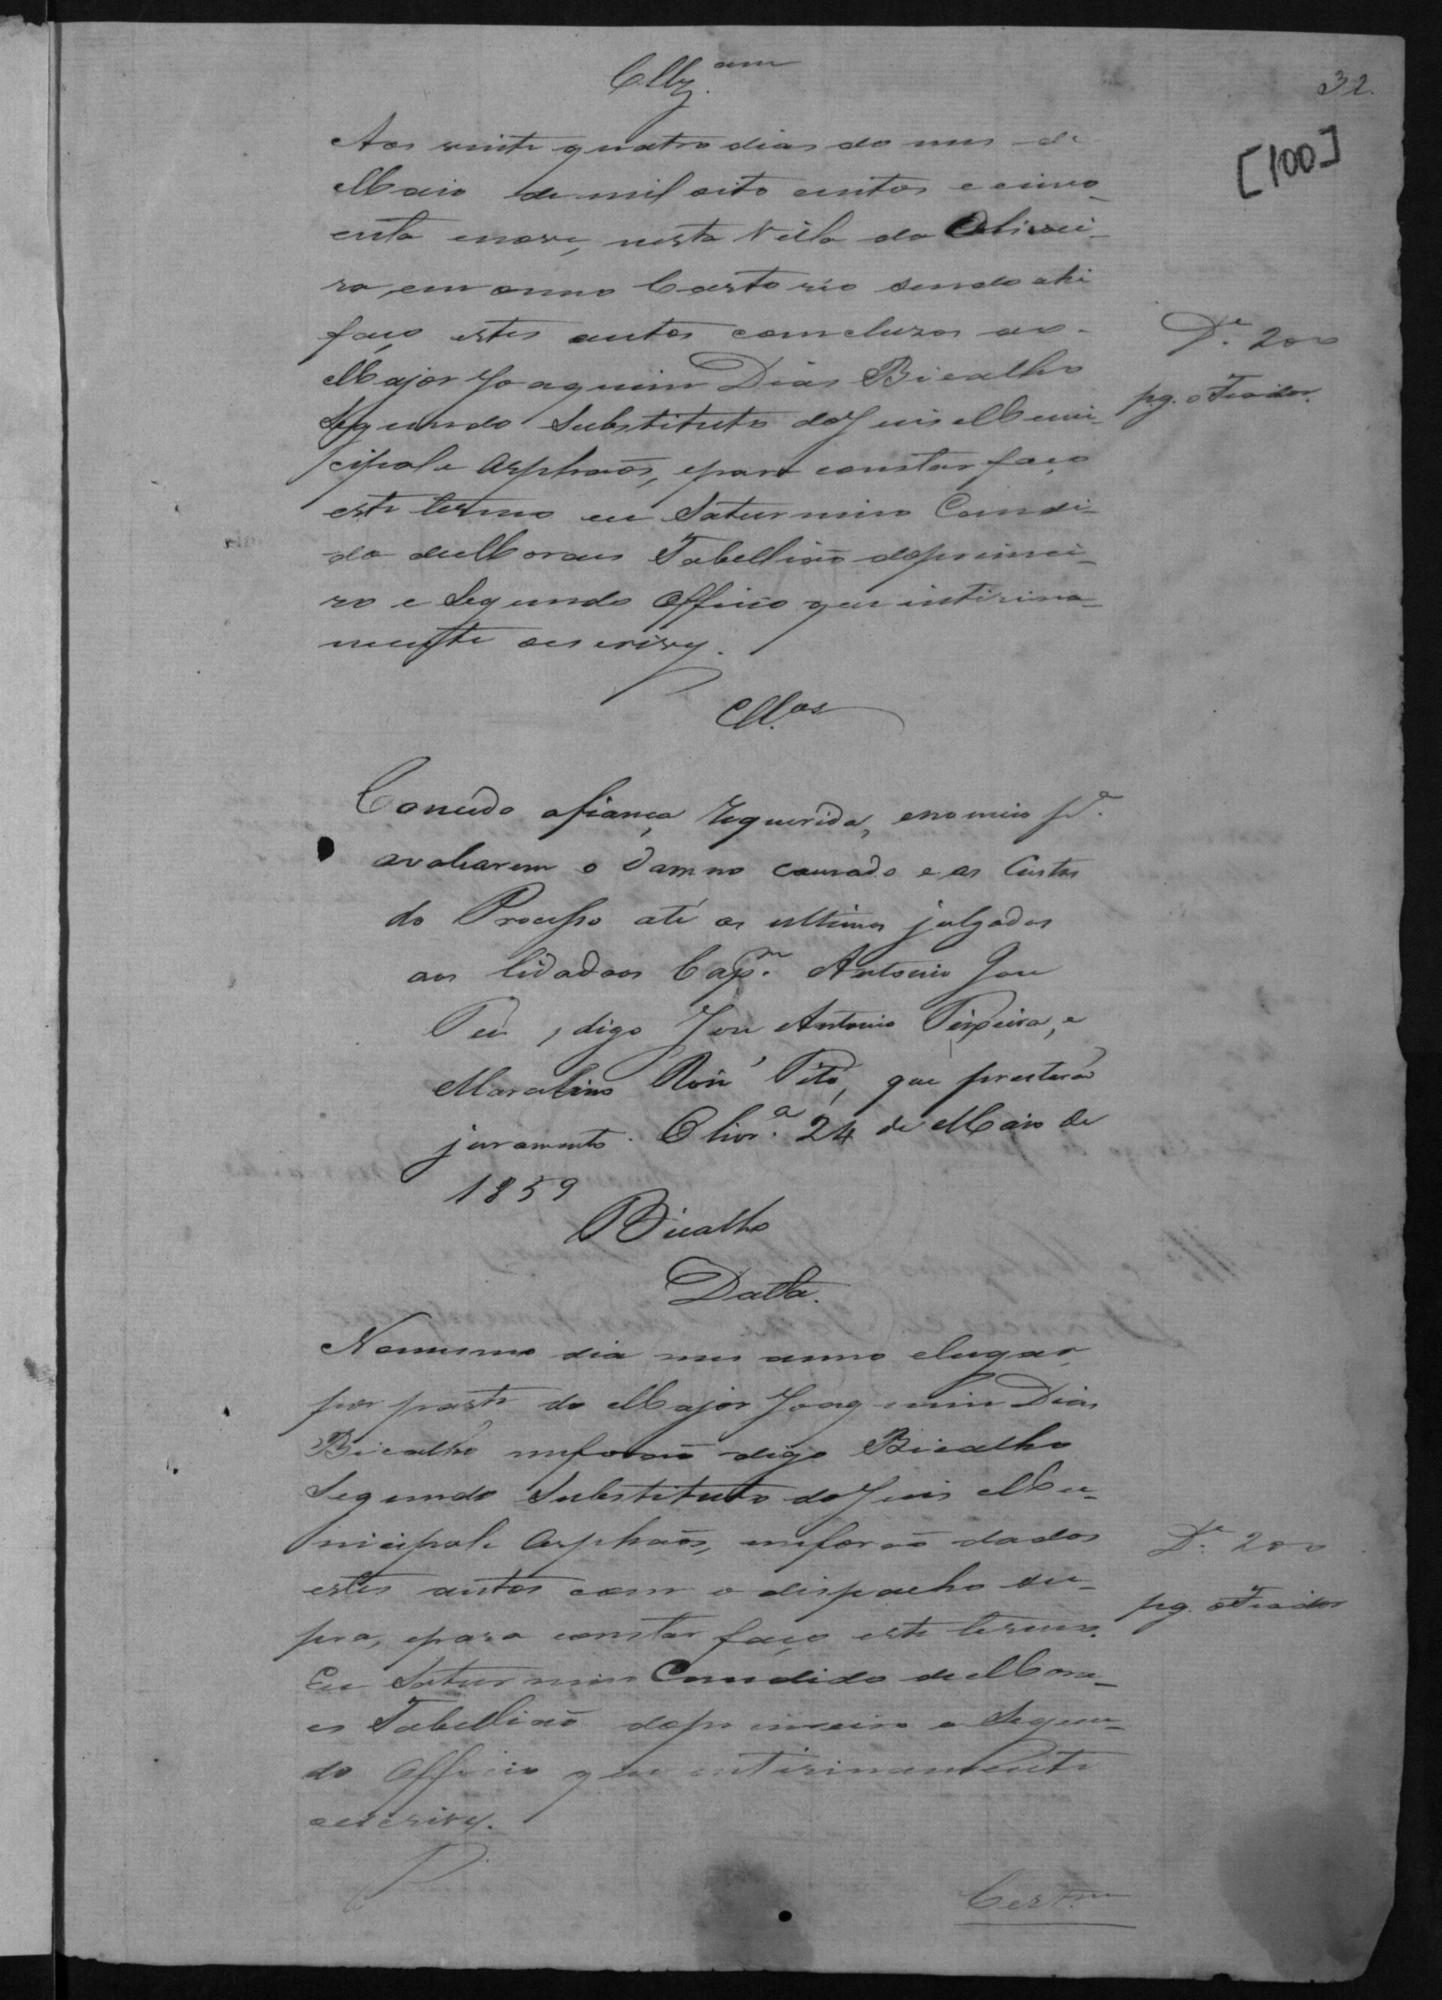 32.
[100]
Cllz.am
Aos vinte quatro dias do mes de
Maio de mil oito centos e cinco_
enta enove, nesta Villa da Olivei_
ra, em omeo Cartorio sendo ahi
faço estes autos comcluzos ao
Major Joaquim Dias Bicalho
Segundo Substituto do Juis Muni_
cipal e Orphaõs, epara constar faço
este termo eu Saturnino Candi_
do de Moraes Tabelliaõ deprimei_
ro e Segundo Officio que intirina_
mente oescrivy.
D.e 200
pg. o Fiador.
Cll.os
Concedo afiança requerida, enomeio p.a
avaliarem o damno causado e as Custas
do Processo até os ultimos julgados
aos Cidadaos Cap.m Antonio Jose
Tei, digo Jose Antonio Teixeira, e
Marcelino Roiz' Tito, que prestaraõ
juramento. Oliv.a 24 de Maio de
1859
Bicalho
Datta.
Nomesmo dia mes anno elugar
por parte do Major Joaquim Dias
Bicalho meforaõ digo Bicalho
Segundo Substituto do Juis Mu_
nicipal e Orphaõs, meforaõ dados
estes autos com o dispacho su_
pra, epara constar faço este termo.
Eu Saturnino Candido de Mora_
es Tabelliaõ deprimeiro e Segun_
do Officio que intirinamente
oescrivy.
D.e 200
pg. o Fiador
Cert.m